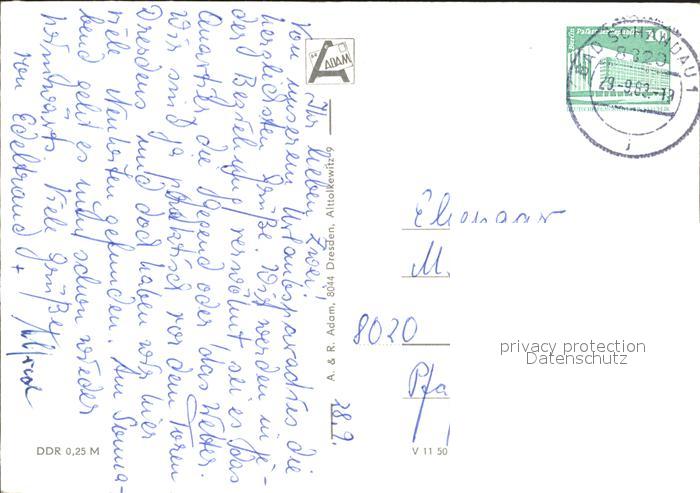 Ihr lieben Zwei!
Von unserem Urlaubsparadies die
herzlichsten Grüße. Wir werden in je-
der Beziehung verwöhnt, sei es das
Quartier die Gegend oder das Wetter.
Wir sind ja praktisch vor den Toren
Dresdens und doch haben wir hier
viele Neuheiten gefunden. Am Sonna-
bend geht es nun schon wieder
heimwärts. Viele Grüße
von Edeltraud +
Alfred
28.9.
ADAM
A
A. & R. Adam, 8044 Dresden, Alttolkewitz 9
DDR 0,25 M
V 11 50
Berlin Palast der Republik
BAD SCHANDAU 1
8320
29.-9.83.-18
i
Ehepaar
M.
8020
Pfa
privacy protection
Datenschutz